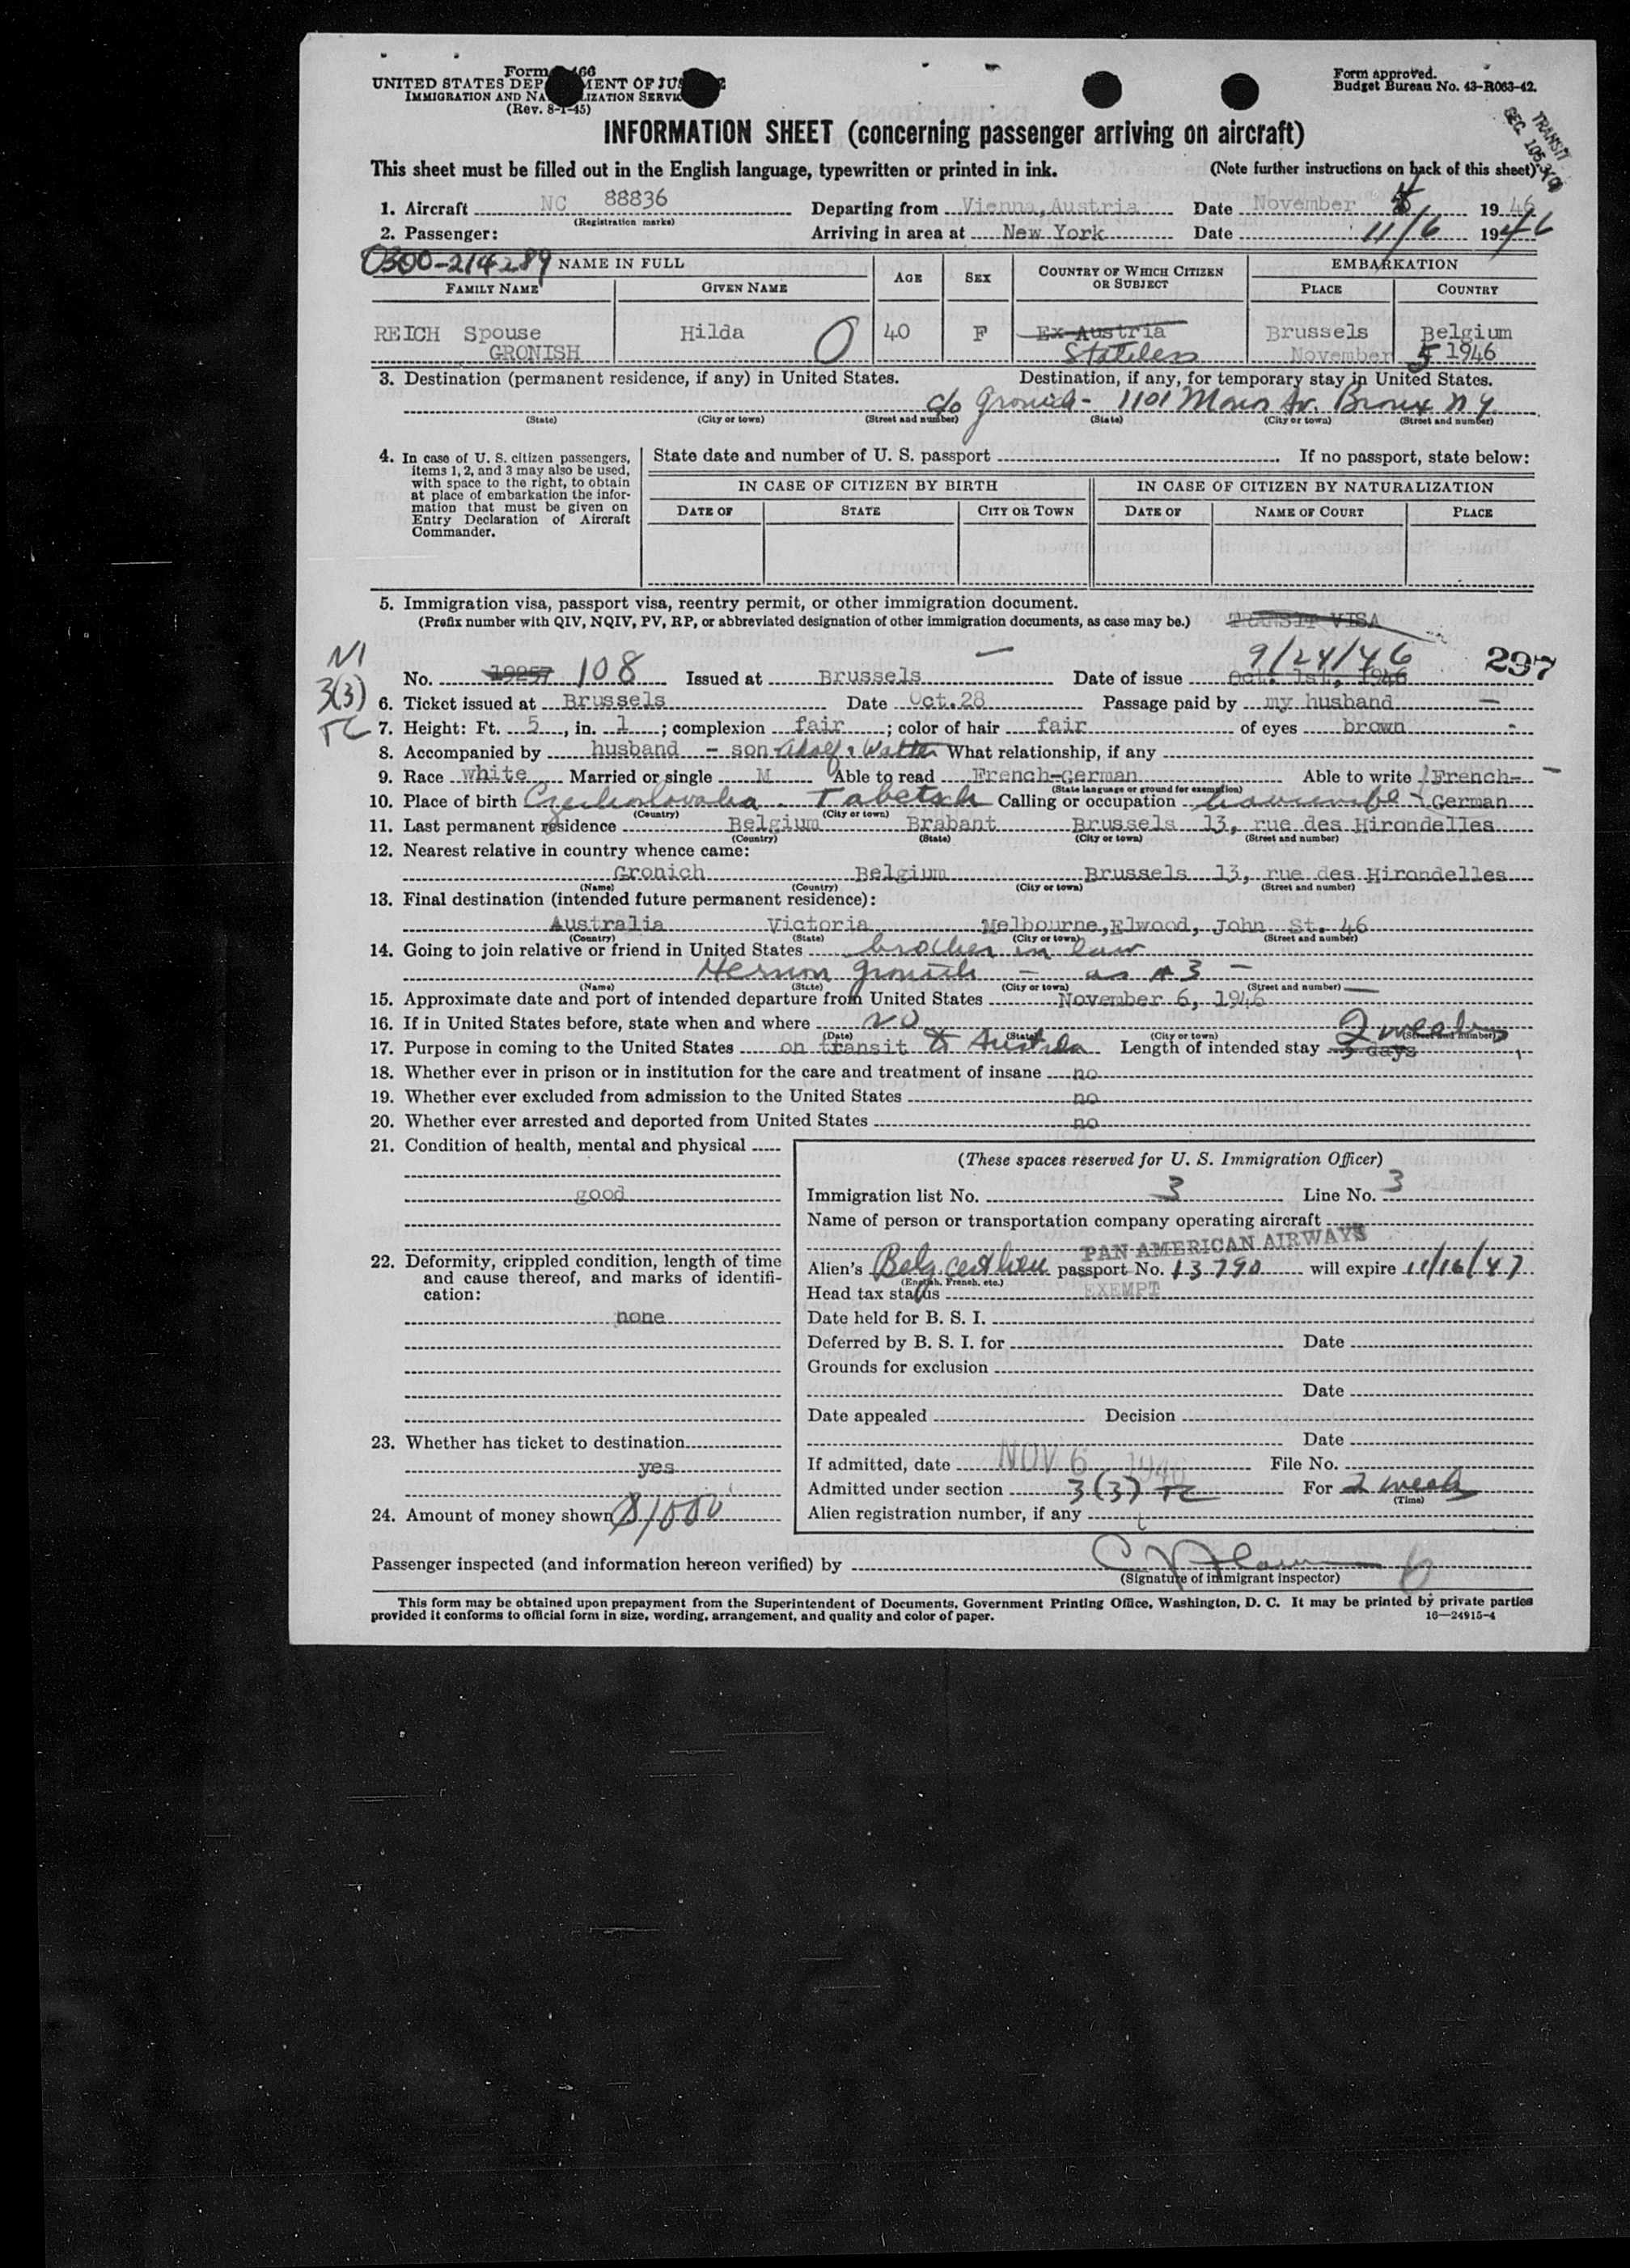 Form 466
UNITED STATES DEP MENT OF JUS
IMMIGRATION AND NA LIZATION SERVIC
(Rev. 8-1-45)
Form approved.
Budget Bureau No. 43-R063-42.
TRANSIT
SEC. 105.3(a)
INFORMATION SHEET (concerning passenger arriving on aircraft)
This sheet must be filled out in the English language, typewritten or printed in ink. (Note further instructions on back of this sheet)
1. Aircraft NC 88836 Departing from Vienna, Austria Date November 1946
(Registration marks)
2. Passenger: Arriving in area at New York Date 11/6 1946
0300-214289 NAME IN FULL AGE SEX COUNTRY OF WHICH CITIZEN OR SUBJECT EMBARKATION
FAMILY NAME GIVEN NAME PLACE COUNTRY
REICH Spouse Hilda 0 40 F Ex Austria Brussels Belgium
GRONISH Stateless November 5 1946
3. Destination (permanent residence, if any) in United States. Destination, if any, for temporary stay in United States.
c/o Gronich - 1101 Bronx N Y
(State) (City or town) (Street and number) (State) (City or town) (Street and number)
4. In case of U. S. citizen passengers, items 1, 2, and 3 may also be used, with space to the right, to obtain at place of embarkation the information that must be given on Entry Declaration of Aircraft Commander.
State date and number of U. S. passport If no passport, state below:
IN CASE OF CITIZEN BY BIRTH IN CASE OF CITIZEN BY NATURALIZATION
DATE OF STATE CITY OR TOWN DATE OF NAME OF COURT PLACE
5. Immigration visa, passport visa, reentry permit, or other immigration document.
(Prefix number with QIV, NQIV, PV, RP, or abbreviated designation of other immigration documents, as case may be.) TRANSIT VISA
9/24/46 297
No. 19257 108 Issued at Brussels Date of issue Oct. 1st, 1946
3(3)
6. Ticket issued at Brussels Date Oct.28 Passage paid by my husband
7. Height: Ft. 5, in. 1; complexion fair; color of hair fair of eyes brown
8. Accompanied by husband - son Adolf & Walter What relationship, if any
9. Race white Married or single M Able to read French-German Able to write French-
(State language or ground for exemption)
10. Place of birth Czechoslovakia Tabetsch Calling or occupation housewife German
(Country) (City or town)
11. Last permanent residence Belgium Brabant Brussels 13, rue des Hirondelles
(Country) (State) (City or town) (Street and number)
12. Nearest relative in country whence came:
Gronich Belgium Brussels 13, rue des Hirondelles
(Name) (Country) (City or town) (Street and number)
13. Final destination (intended future permanent residence):
Australia Victoria Melbourne, Elwood, John St. 46
(Country) (State) (City or town) (Street and number)
14. Going to join relative or friend in United States brother in law
Gronich - as # 3 -
(Name) (State) (City or town) (Street and number)
15. Approximate date and port of intended departure from United States November 6, 1946
16. If in United States before, state when and where no
(Date) (State) (City or town) (Street and number)
2 weeks
17. Purpose in coming to the United States on transit to Australia Length of intended stay 3 days
18. Whether ever in prison or in institution for the care and treatment of insane no
19. Whether ever excluded from admission to the United States no
20. Whether ever arrested and deported from United States no
21. Condition of health, mental and physical
good
22. Deformity, crippled condition, length of time and cause thereof, and marks of identification:
none
23. Whether has ticket to destination
yes
24. Amount of money shown $1000
(These spaces reserved for U. S. Immigration Officer)
Immigration list No. 3 Line No. 3
Name of person or transportation company operating aircraft
PAN AMERICAN AIRWAYS
Alien's Belg passport No. 13790 will expire 11/16/47
(English, French, etc.)
Head tax status EXEMPT
Date held for B. S. I.
Deferred by B. S. I. for Date
Grounds for exclusion
Date
Date appealed Decision
Date
If admitted, date NOV 6 1946 File No.
Admitted under section 3(3) TC For 2 weeks
(Time)
Alien registration number, if any
Passenger inspected (and information hereon verified) by
(Signature of immigrant inspector)
This form may be obtained upon prepayment from the Superintendent of Documents, Government Printing Office, Washington, D. C. It may be printed by private parties
provided it conforms to official form in size, wording, arrangement, and quality and color of paper. 16—24915-4